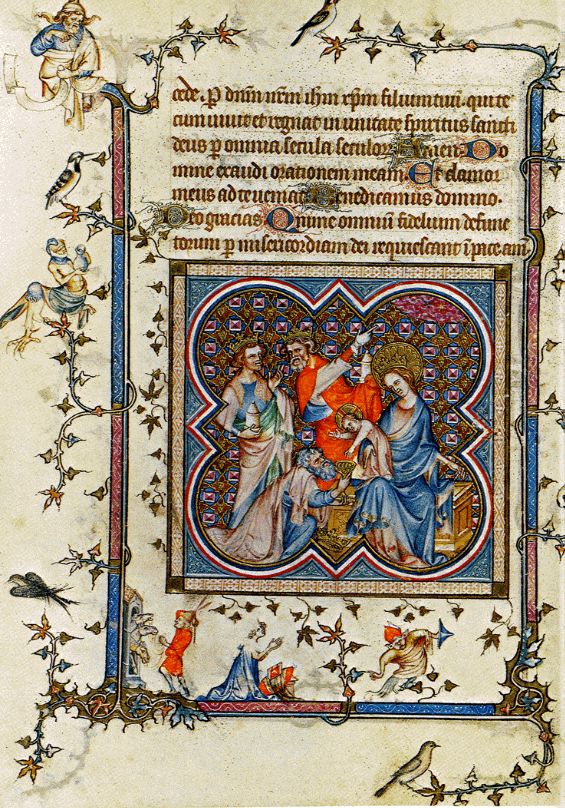 cede. P dnm nrm ihm xpm filium tuu. qui te
cum uiuit et regnat in unitate spiritus sancti
deus p omnia secula seculor Amen. Do
mine exaudi orationem meam. Et clamor
meus ad te ueniat. Benedicamus domino.
Deo gracias. Quine omniu fidelium defunc
torum p misericordiam dei requiescant i pace. am